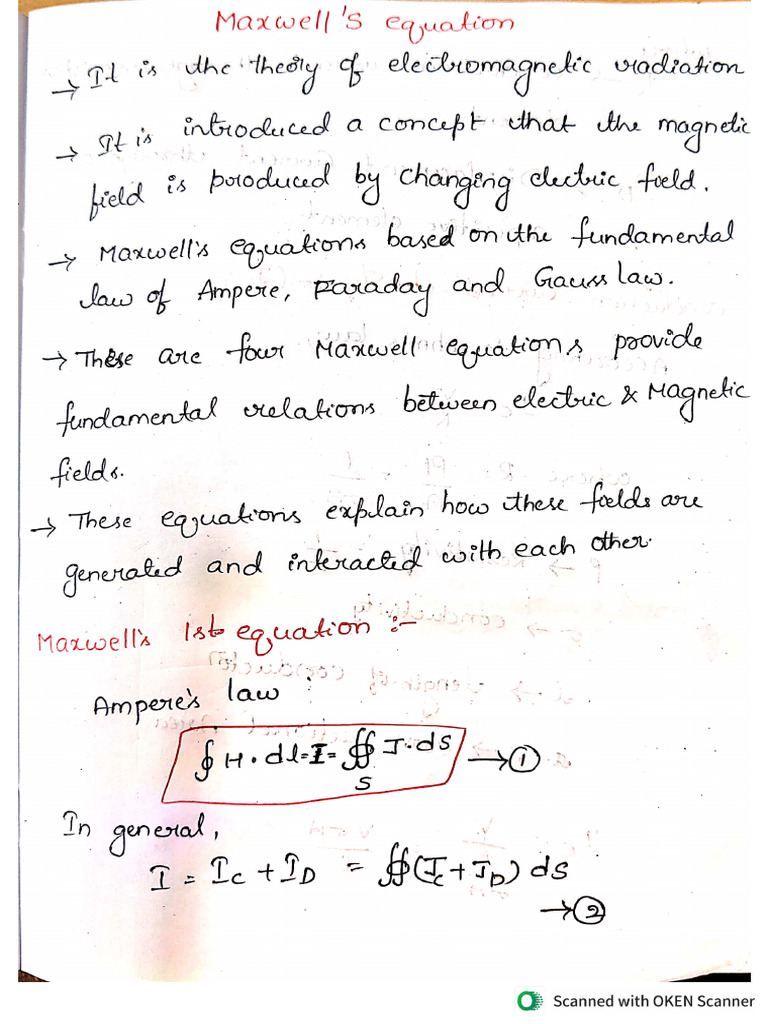 Maxwell's equation
→ It is the theory of electromagnetic radiation
→ It is introduced a concept that the magnetic
field is produced by changing electric field.
→ Maxwell's equations based on the fundamental
law of Ampere, Faraday and Gauss law.
→ These are four Maxwell equations provide
fundamental relations between electric & Magnetic
fields.
→ These equations explain how these fields are
generated and interacted with each other.
Maxwell's 1st equation :-
Ampere's law :
∮ H . dl = I = ∯ J . ds → ①
S
In general,
I = I_C + I_D = ∯ (J_C + J_D) ds
→ ②
Scanned with OKEN Scanner